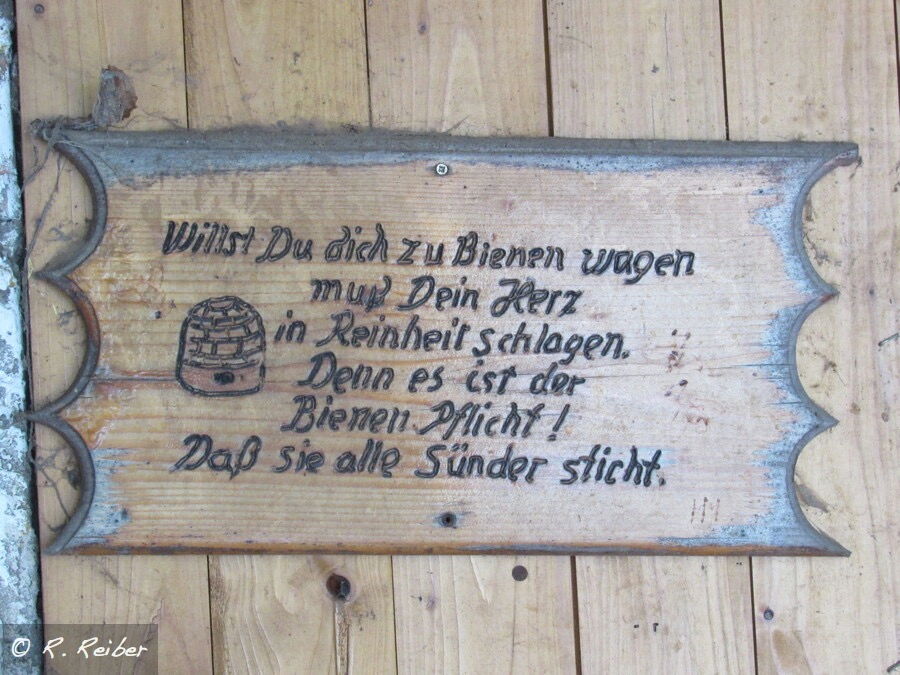 Willst Du dich zu Bienen wagen
muß Dein Herz
in Reinheit schlagen.
Denn es ist der
Bienen Pflicht!
Daß sie alle Sünder sticht.
© R. Reiber